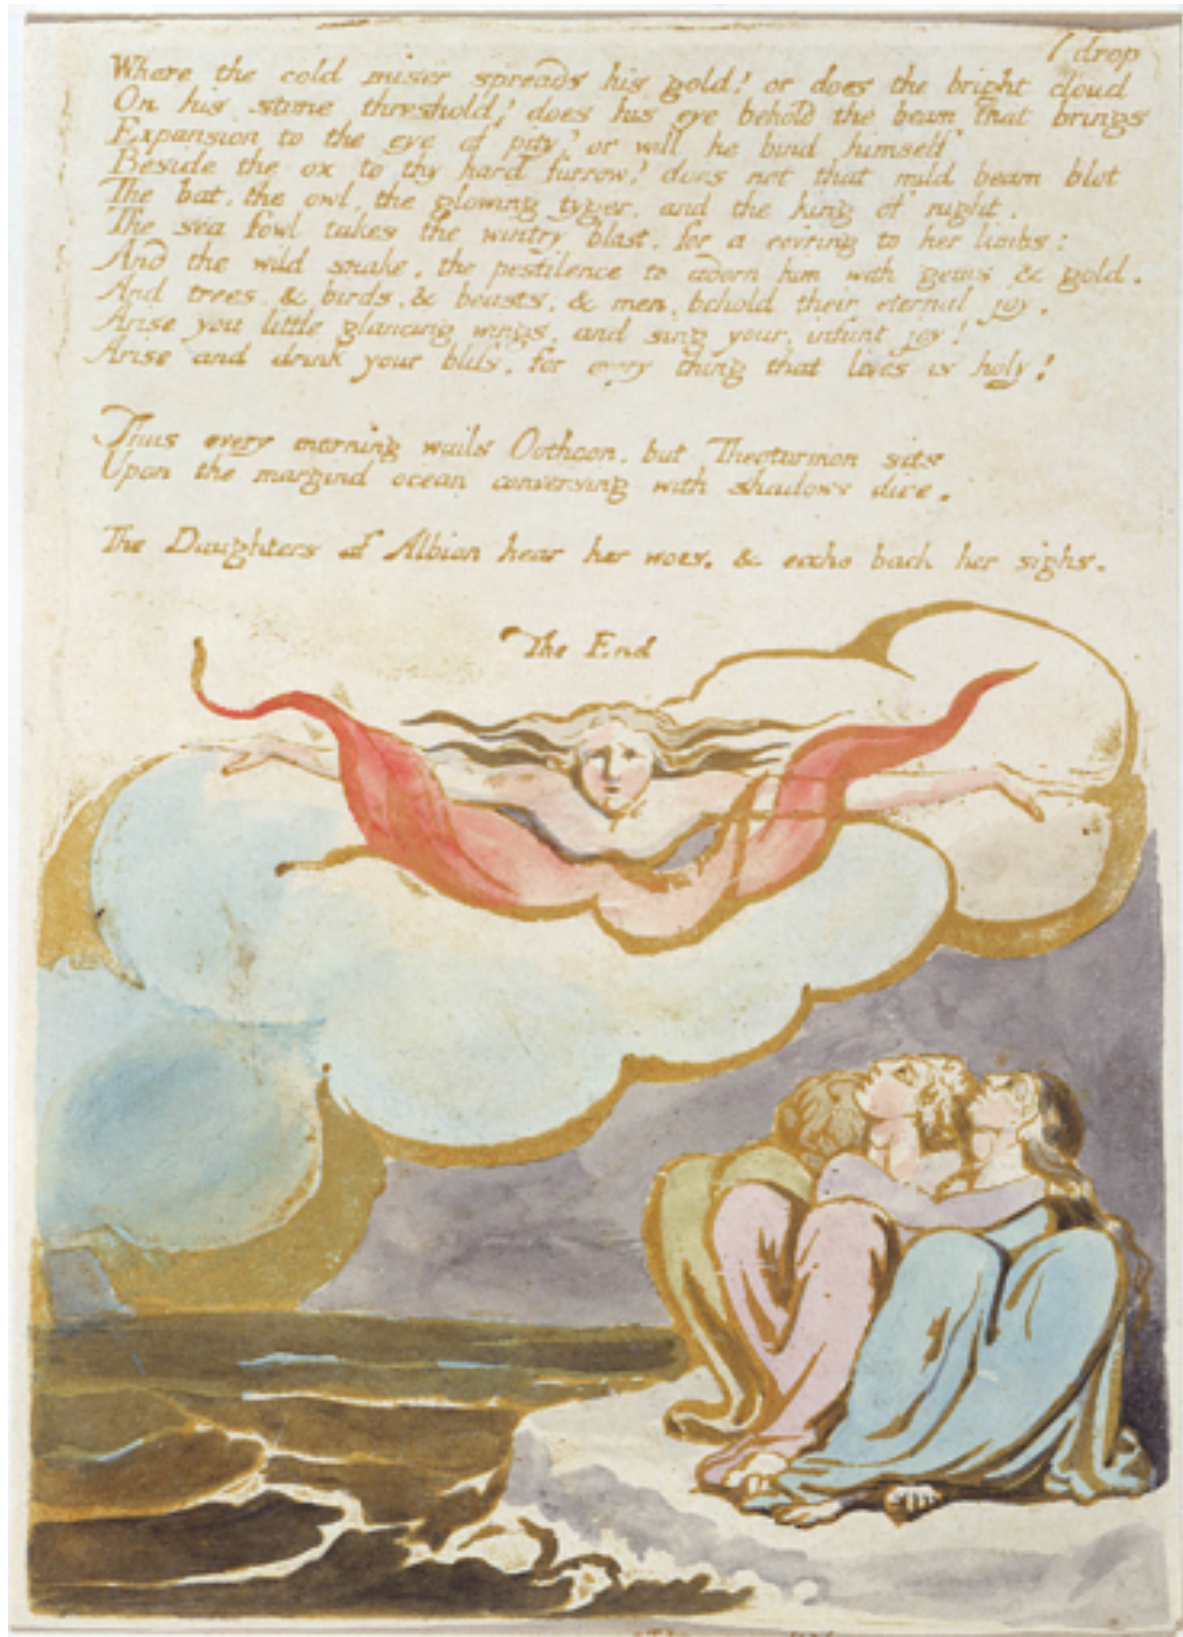 / drop
Where the cold miser spreads his gold? or does the bright cloud
On his stone threshold? does his eye behold the beam that brings
Expansion to the eye of pity? or will he bind himself
Beside the ox to thy hard furrow? does not that mild beam blot
The bat, the owl, the glowing tyger, and the king of night.
The sea fowl takes the wintry blast, for a covring to her limbs:
And the wild snake, the pestilence to adorn him with gems & gold.
And trees, & birds, & beasts, & men, behold their eternal joy.
Arise you little glancing wings, and sing your infant joy!
Arise and drink your bliss, for every thing that lives is holy!
Thus every morning wails Oothoon, but Theotormon sits
Upon the margind ocean conversing with shadows dire.
The Daughters of Albion hear her woes, & eccho back her sighs.
The End